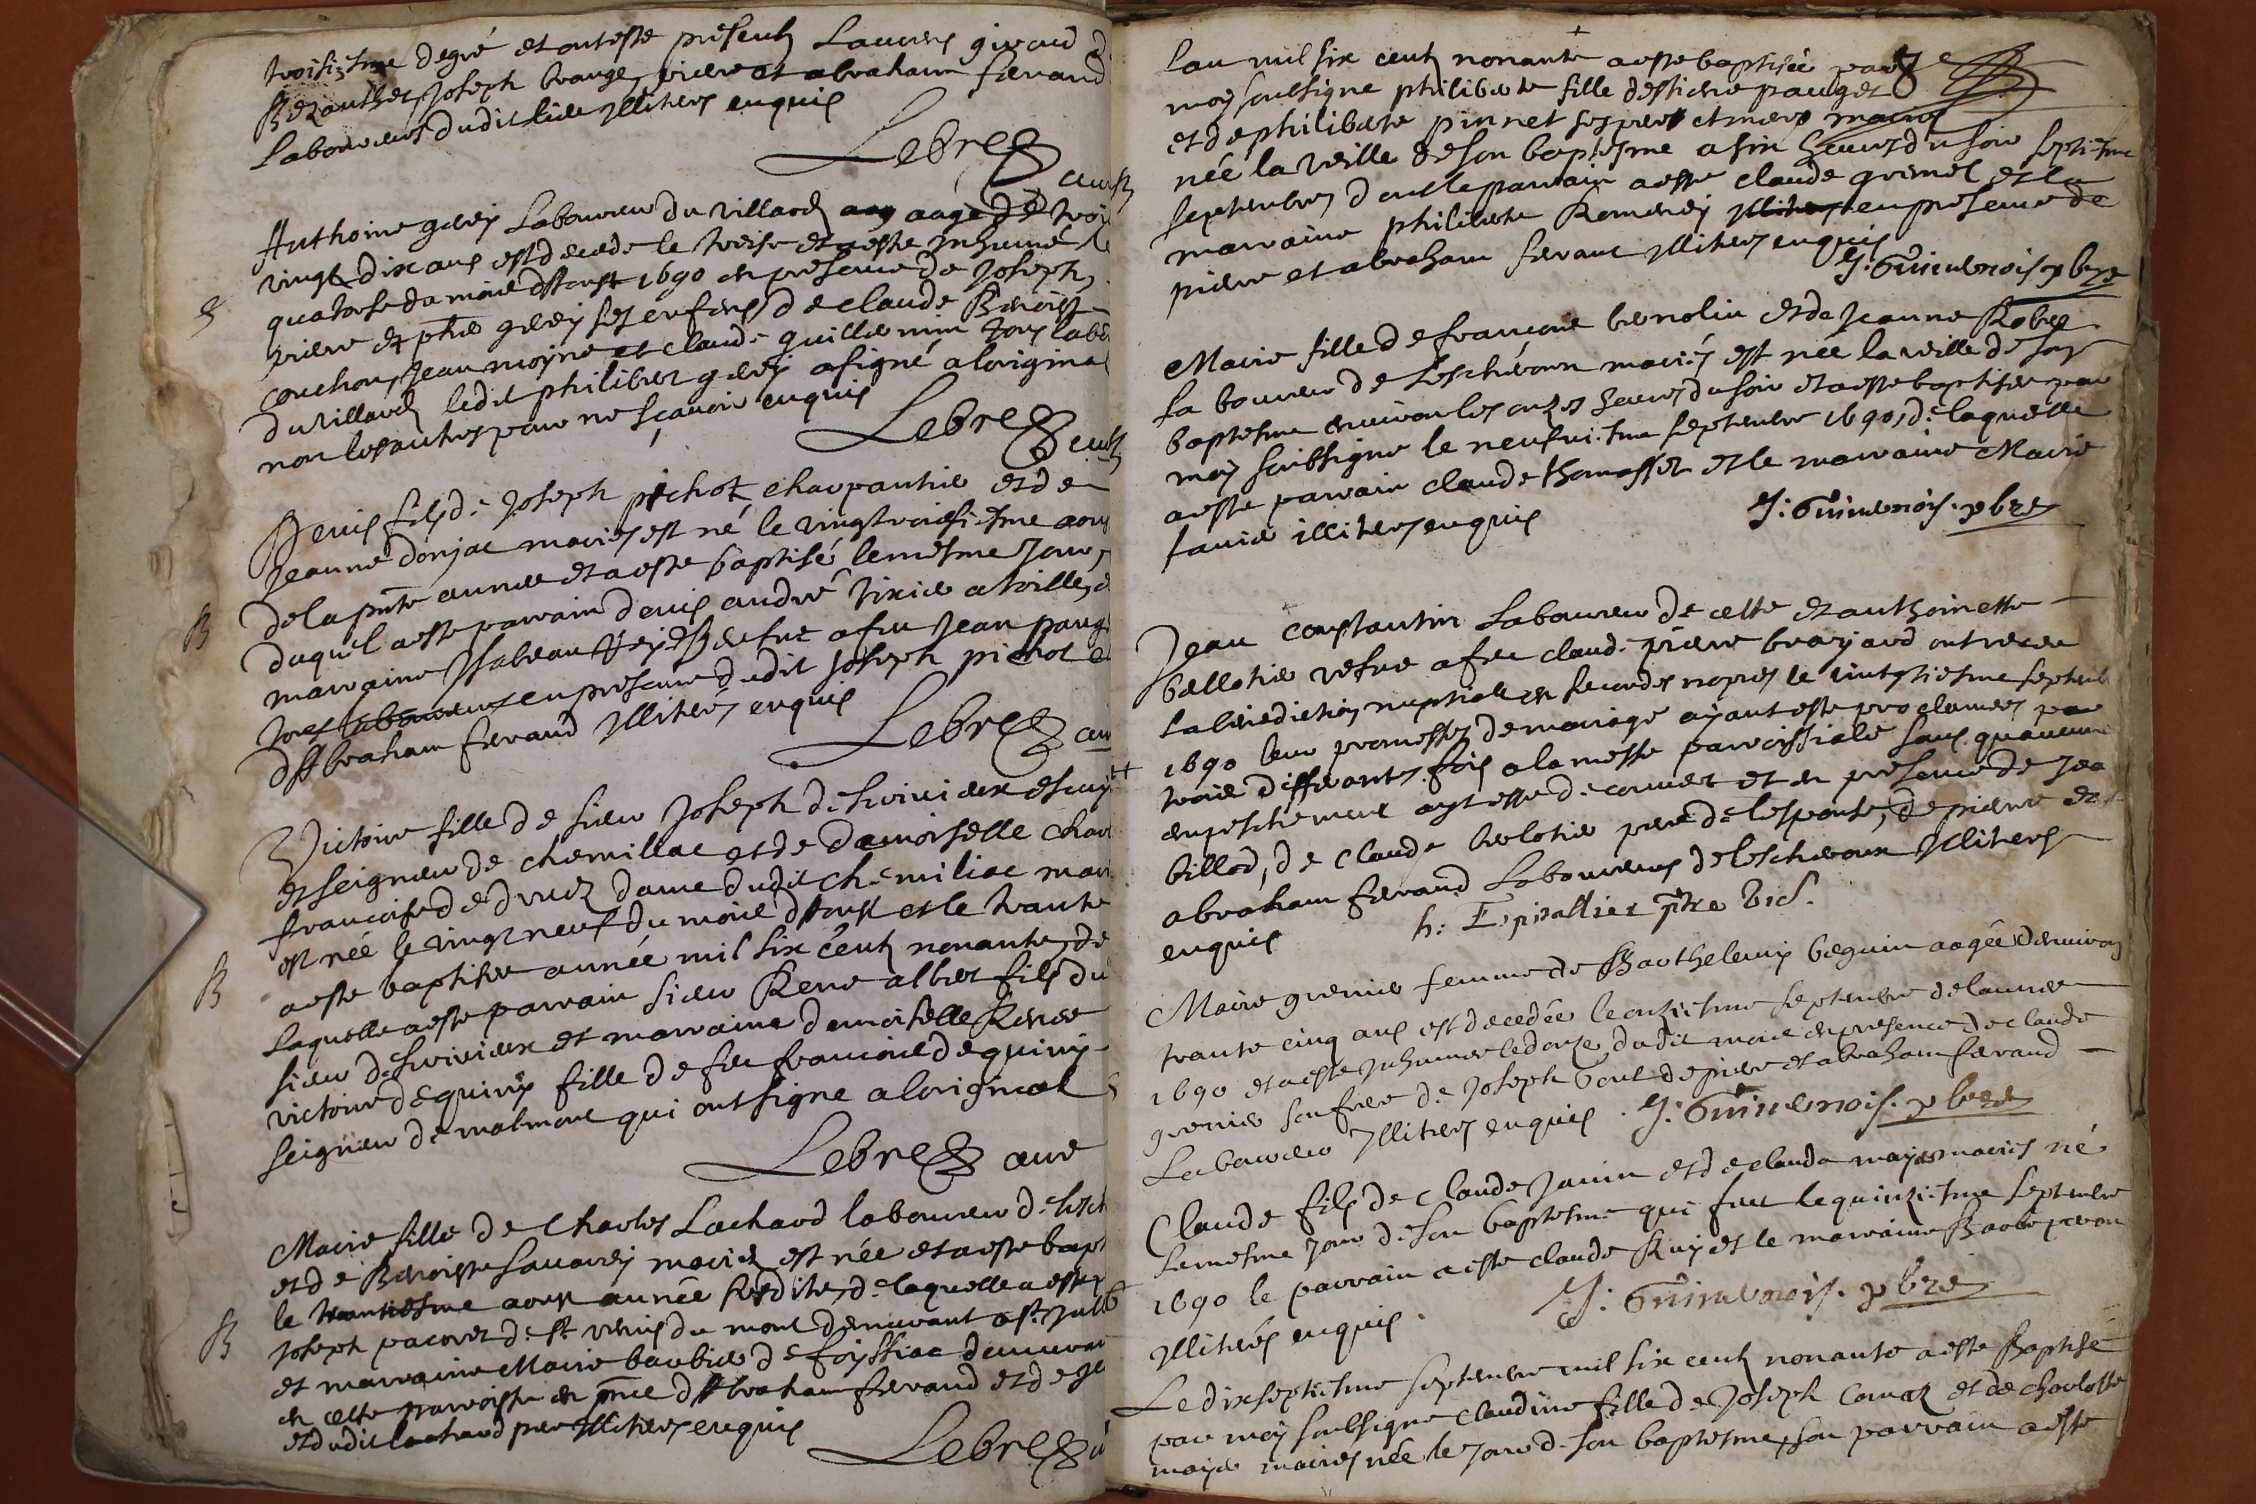 troisiesme degré et ont esté presents Laurens giroud
Bezanthet, Joseph brange, pierre et abraham ferand
Laboureurs dudit lieu Illiteres enquis
Lebrez
Anthoine grey Laboureur du villard aagé de
vingt dix ans est decede le treise et a esté Inhumé
quatorse du mois d'Aoust 1690 en presence de Joseph,
pierre et phre grey ses enfans, de claude Benoist
couchon, Jean moyne et claude guillemin tous labo
du villard ledit philibert grey a signé a loriginal
non les autres pour ne sçavoir enquis
Lebrez
Denis fils de Joseph pichot charpantier et de
Jeanne donjac mariés est né le vingt troisiesme aous
de la pnte annee et a esté baptisé le mesme Jour,
duquel a esté parrain denis andré tixier atville,
marraine Isabeau vefue a feu Jean pauge
en presence dudit Joseph pichot
d'Abraham ferand Illiteres enquis
Lebrez
Victoire fille de sieur Joseph de escuy
et seigneur de chemillac et de damoiselle char
francoise de druez dame dudit chemiliac mari
est née le vingt neuf du mois d'Aoust et le trante
a esté baptisee année mil six cents nonante, de
laquelle a esté parrain sieur Rene albert fils du
sieur et marraine damoiselle Renee
victoire de quiny fille de feu francois de quiny
seigneur de malmont qui ont signe a loriginal
Lebrez cure
Marie fille de Charles Lachard laboureur de lesch
et de Benoiste Sauarey mariez est née et a esté bapt
le trantiesme aoust année susdite, de laquelle a esté p
Joseph pacoret de st. du mont demeurant a st. Jul
et marraine Marie barbier de foissiac demeuran
en cette parroisse en pnce d'Abraham ferand et de
et dudit lachard pere Illiteres enquis
Lebrez
Lan mil six cents nonante a esté baptisée par
moy soubsigne philiberte fille destiene pauget
et de philiberte pinnet ses pere et mere mariés
née la veille de son baptesme a six heures du soir septiesme
septembre, dont le parrain a esté claude grimel et la
marraine philiberte Romerey en presence de
pierre et abraham ferand Illiteres enquis
J: Guimenois. pbre
Marie fille de francois benolin et de Jeanne Robez
laboureur de Lescheroux mariés est née la veille de son
baptesme environ les onzes heures du soir et a esté baptisee par
moy soubsigne le neufviesme septembre 1690, de laquelle
a esté parrain claude thomasset et le marraine Marie
favier illiteres enquis
J: Guimenois. pbre
Jean constantin Laboureur de cette et anthoinette
bellotier vefue a feu claude pierre broyard ont receu
la benediction nuptialle en secondes nopces le septemb
1690 leur promesses de mariage ayant esté proclamées par
trois differantes fois a la messe parroissiale sans quaucun
empeschement ayt esté decouvert et en presence de Jea
billod, de Claude belotier pere de lespouse, de pierre et
abraham ferand Laboureurs de lescheroux Illiteres
enquis
h: Espiallier ptre vic.
Marie grenier femme de Barthelemy beguin aagée denviron
trante cinq ans est decedée le onziesme septembre de lannee
1690 et a esté Inhumee le douze dudit mois en presence de claude
grenier son frere de Joseph bont de pierre et abraham ferand
Laboureur Illiteres enquis. J: Guimenois. pbre
Claude fils de Claude Janin et de clauda mariés né
le mesme Jour de son baptesme qui fut le quinziesme septembre
1690 le parrain a esté claude Ruy et le marraine Barbe
Illiterés enquis.
J: Guimenois. pbre
Le dixseptiesme septembre mil six cents nonante a esté Baptisé
par moy soubsigne claudine fille de Joseph Comaz et de charlotte
mariés née le Jour de son baptesme, son parrain a esté